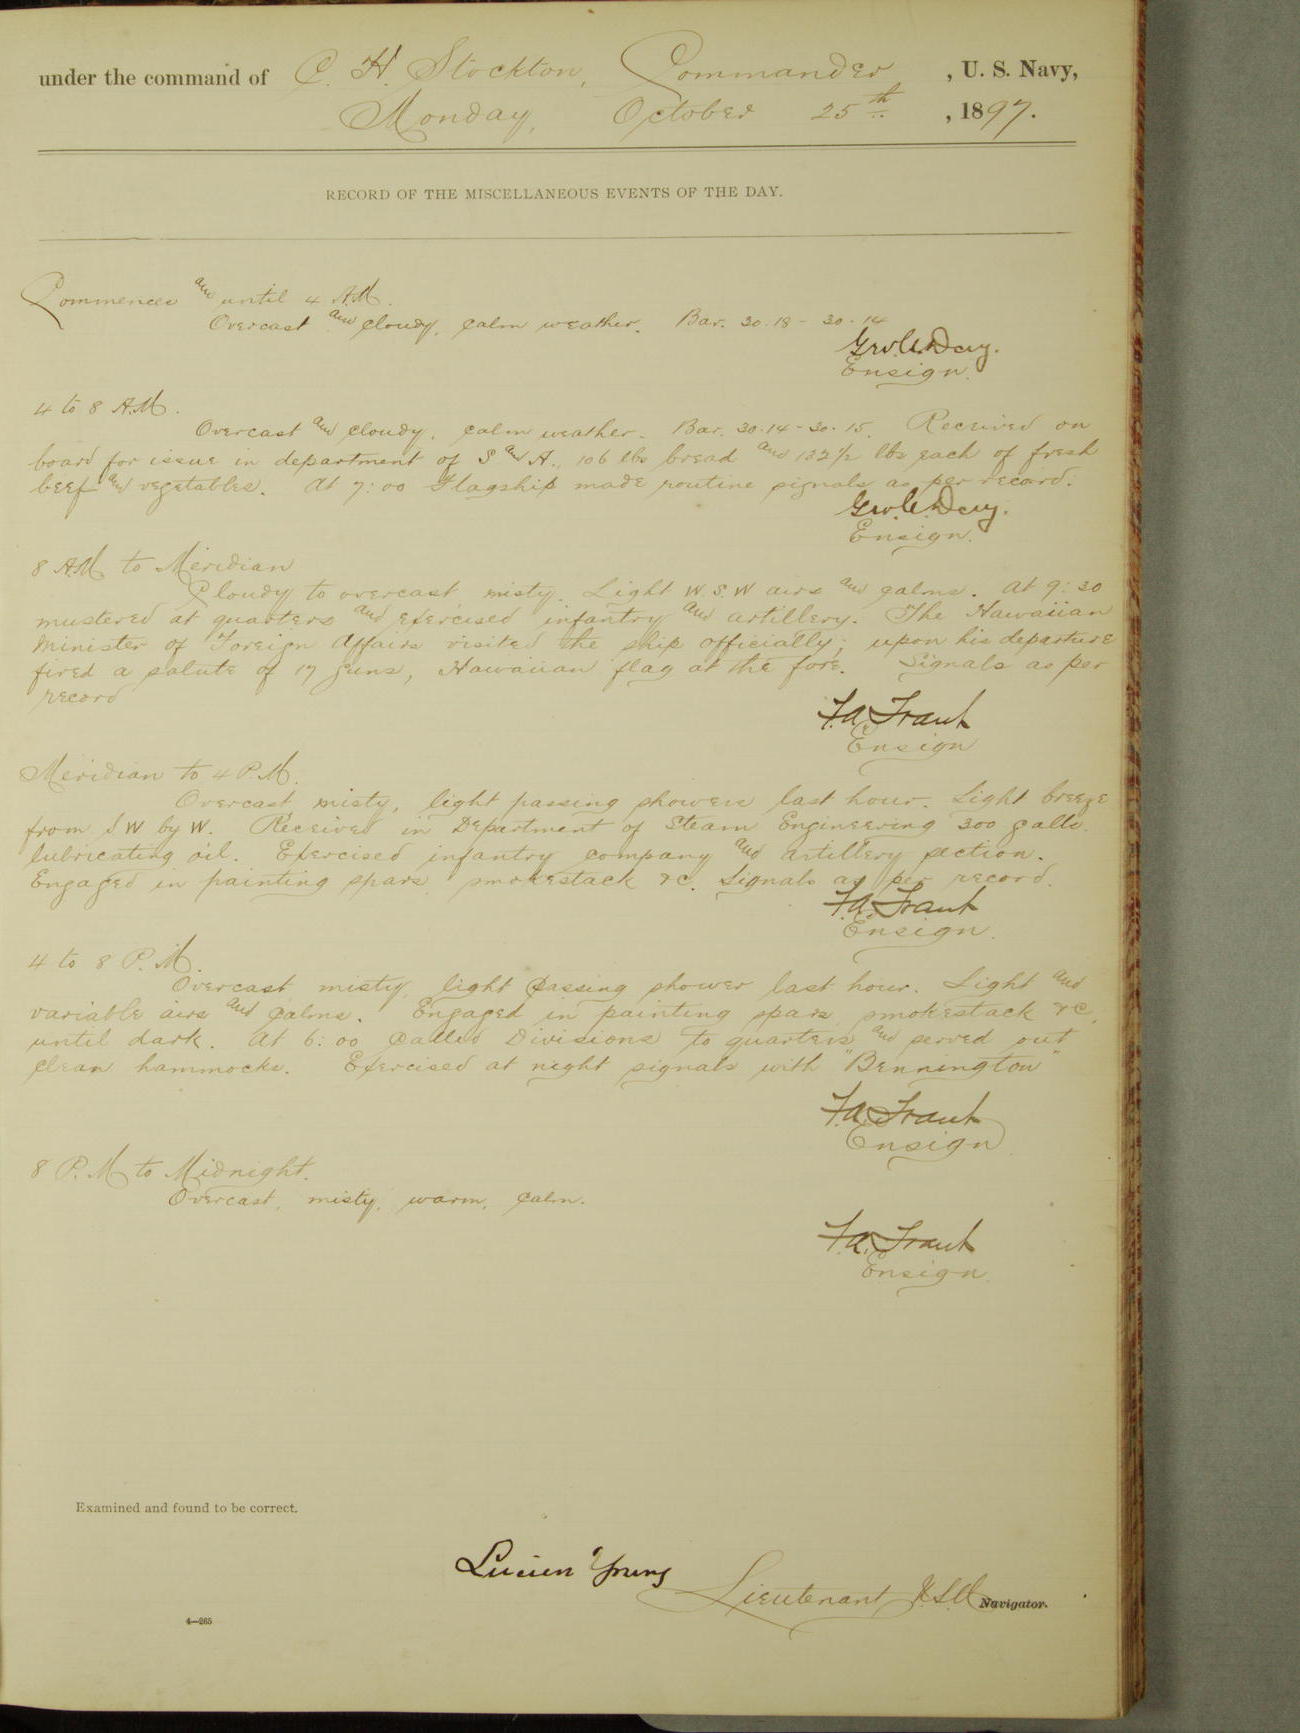 under the command of C. H. Stockton, Commander, U. S. Navy,
Monday, October 25th, 1897.
RECORD OF THE MISCELLANEOUS EVENTS OF THE DAY.
Commences and until 4 A.M.
Overcast and cloudy, calm weather. Bar. 30.18 - 30.14
Geo. C. Day.
Ensign.
4 to 8 A.M.
Overcast and cloudy, calm weather. Bar. 30.14 - 30.15. Received on
board for issue in department of S and A., 106 lbs bread and 132 1/2 lbs each of fresh
beef and vegetables. At 7:00 Flagship made routine signals as per record.
Geo. C. Day.
Ensign.
8 A.M. to Meridian
Cloudy to overcast misty. Light W.S.W airs and calms. At 9:30
mustered at quarters and exercised infantry and artillery. The Hawaiian
Minister of Foreign Affairs visited the ship officially; upon his departure
fired a salute of 17 guns, Hawaiian flag at the fore. Signals as per
record
F.A. Traut
Ensign
Meridian to 4 P.M.
Overcast, misty, light passing showers last hour. Light breeze
from SW by W. Received in Department of Steam Engineering 300 galls.
lubricating oil. Exercised infantry company and artillery section.
Engaged in painting spars, smokestack &c. Signals as per record.
F.A. Traut
Ensign.
4 to 8 P.M.
Overcast misty, light passing shower last hour. Light and
variable airs and calms. Engaged in painting spars smokestack &c.
until dark. At 6:00 called Divisions to quarters and served out
clean hammocks. Exercised at night signals with "Bennington"
F.A. Traut
Ensign
8 P.M. to Midnight.
Overcast, misty, warm, calm.
F.A. Traut
Ensign.
Examined and found to be correct.
Lucien Young
Lieutenant U.S.N. Navigator.
4—265